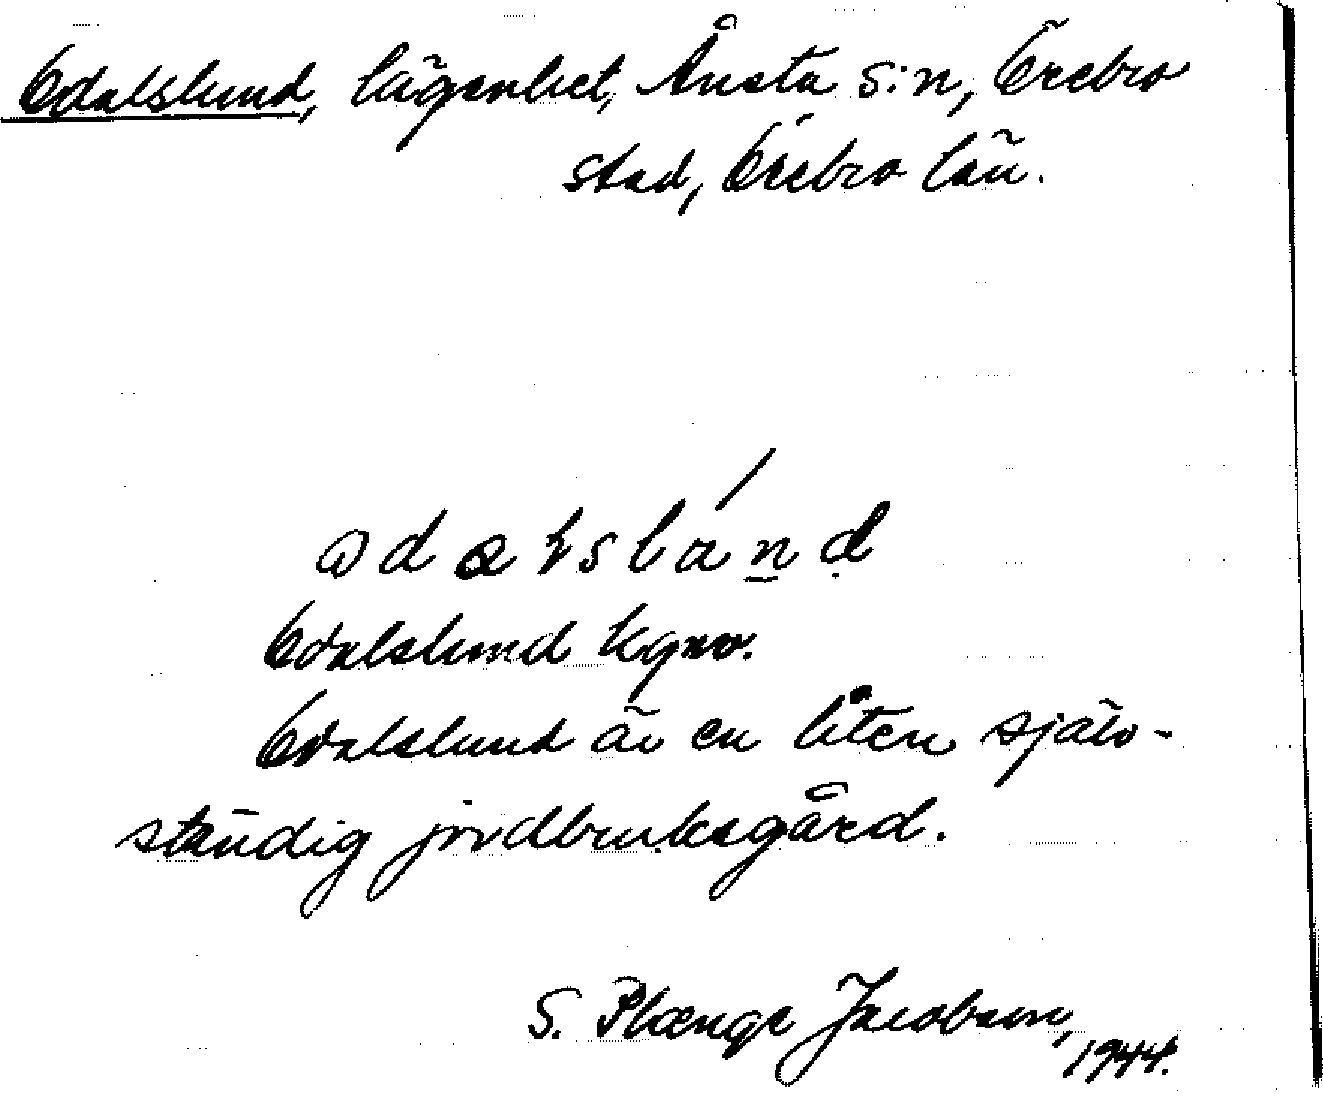 Odalslund, lägenhet, Ånsta s:n, Örebro
stad, Örebro län.
Odalslund
Odalslund är en liten själv-
ständig jordbruksgård.
S. Plænge Jacobson,
1944.